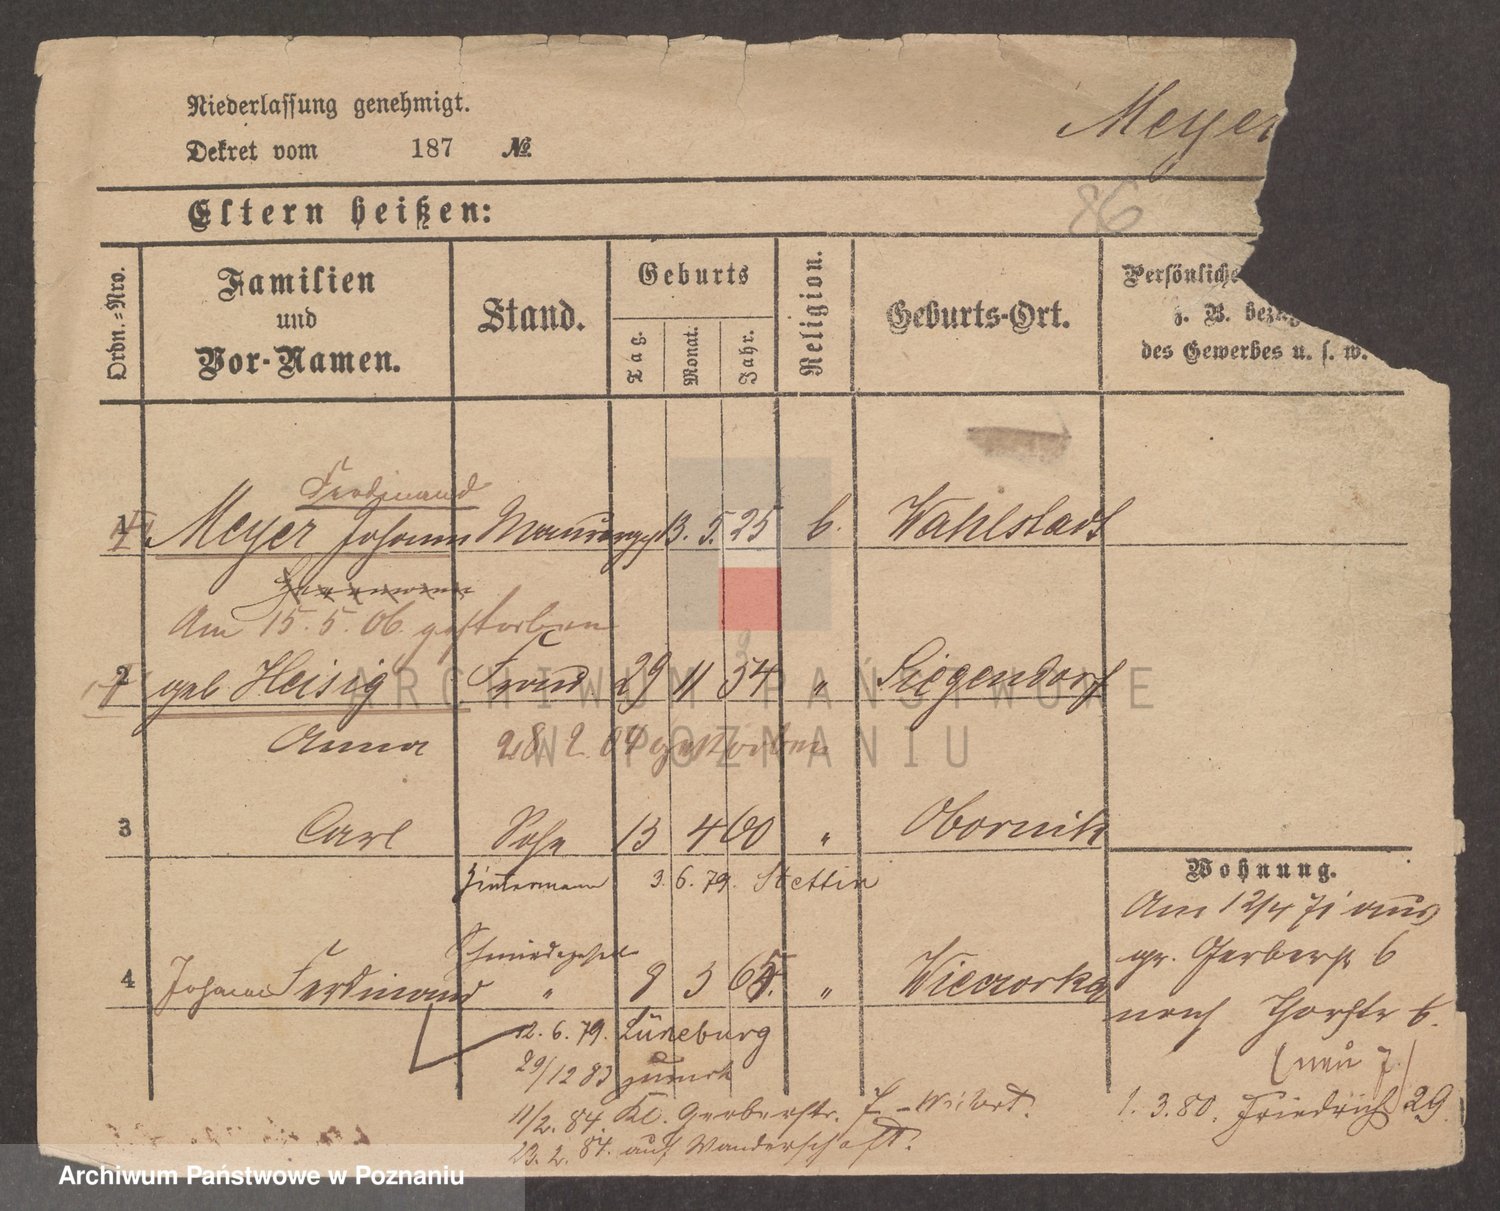 Niederlassung genehmigt.
Dekret vom 187 №.
Meyer
86
Eltern heißen:
Ordn.-Nro.
Familien und Vor-Namen.
Stand.
Geburts
Tag.
Monat.
Jahr.
Religion.
Geburts-Ort.
Persönliche
z. B. bezüg
des Gewerbes u. s. w.
Ferdinand
1 Meyer Johann 13. 5. 25 Wahlstadt
Am 15. 5. 06. gestorben
2 geb Heisig Frau 29 11 34 " Siegendorf
Anna 28 2 04 gestorben
3 Carl Sohn 13 4 60 " Obornik
Zimmermann 3. 6. 79. Stettin
Wohnung.
Am 12/4 71 aus
gr. Gerberstr 6
nach Thorstr 6.
(neu 7.)
1. 3. 80. Friedrichst 29.
Schmiedegesell
4 Johann Ferdinand " 9 3 65. "
12. 6. 79. Lüneburg
29/12 83 zurück
11/2. 84. Kl. Gerberstr. 7
23. 2. 84. auf Wanderschaft.
ARCHIWUM PAŃSTWOWE
W POZNANIU
Archiwum Państwowe w Poznaniu